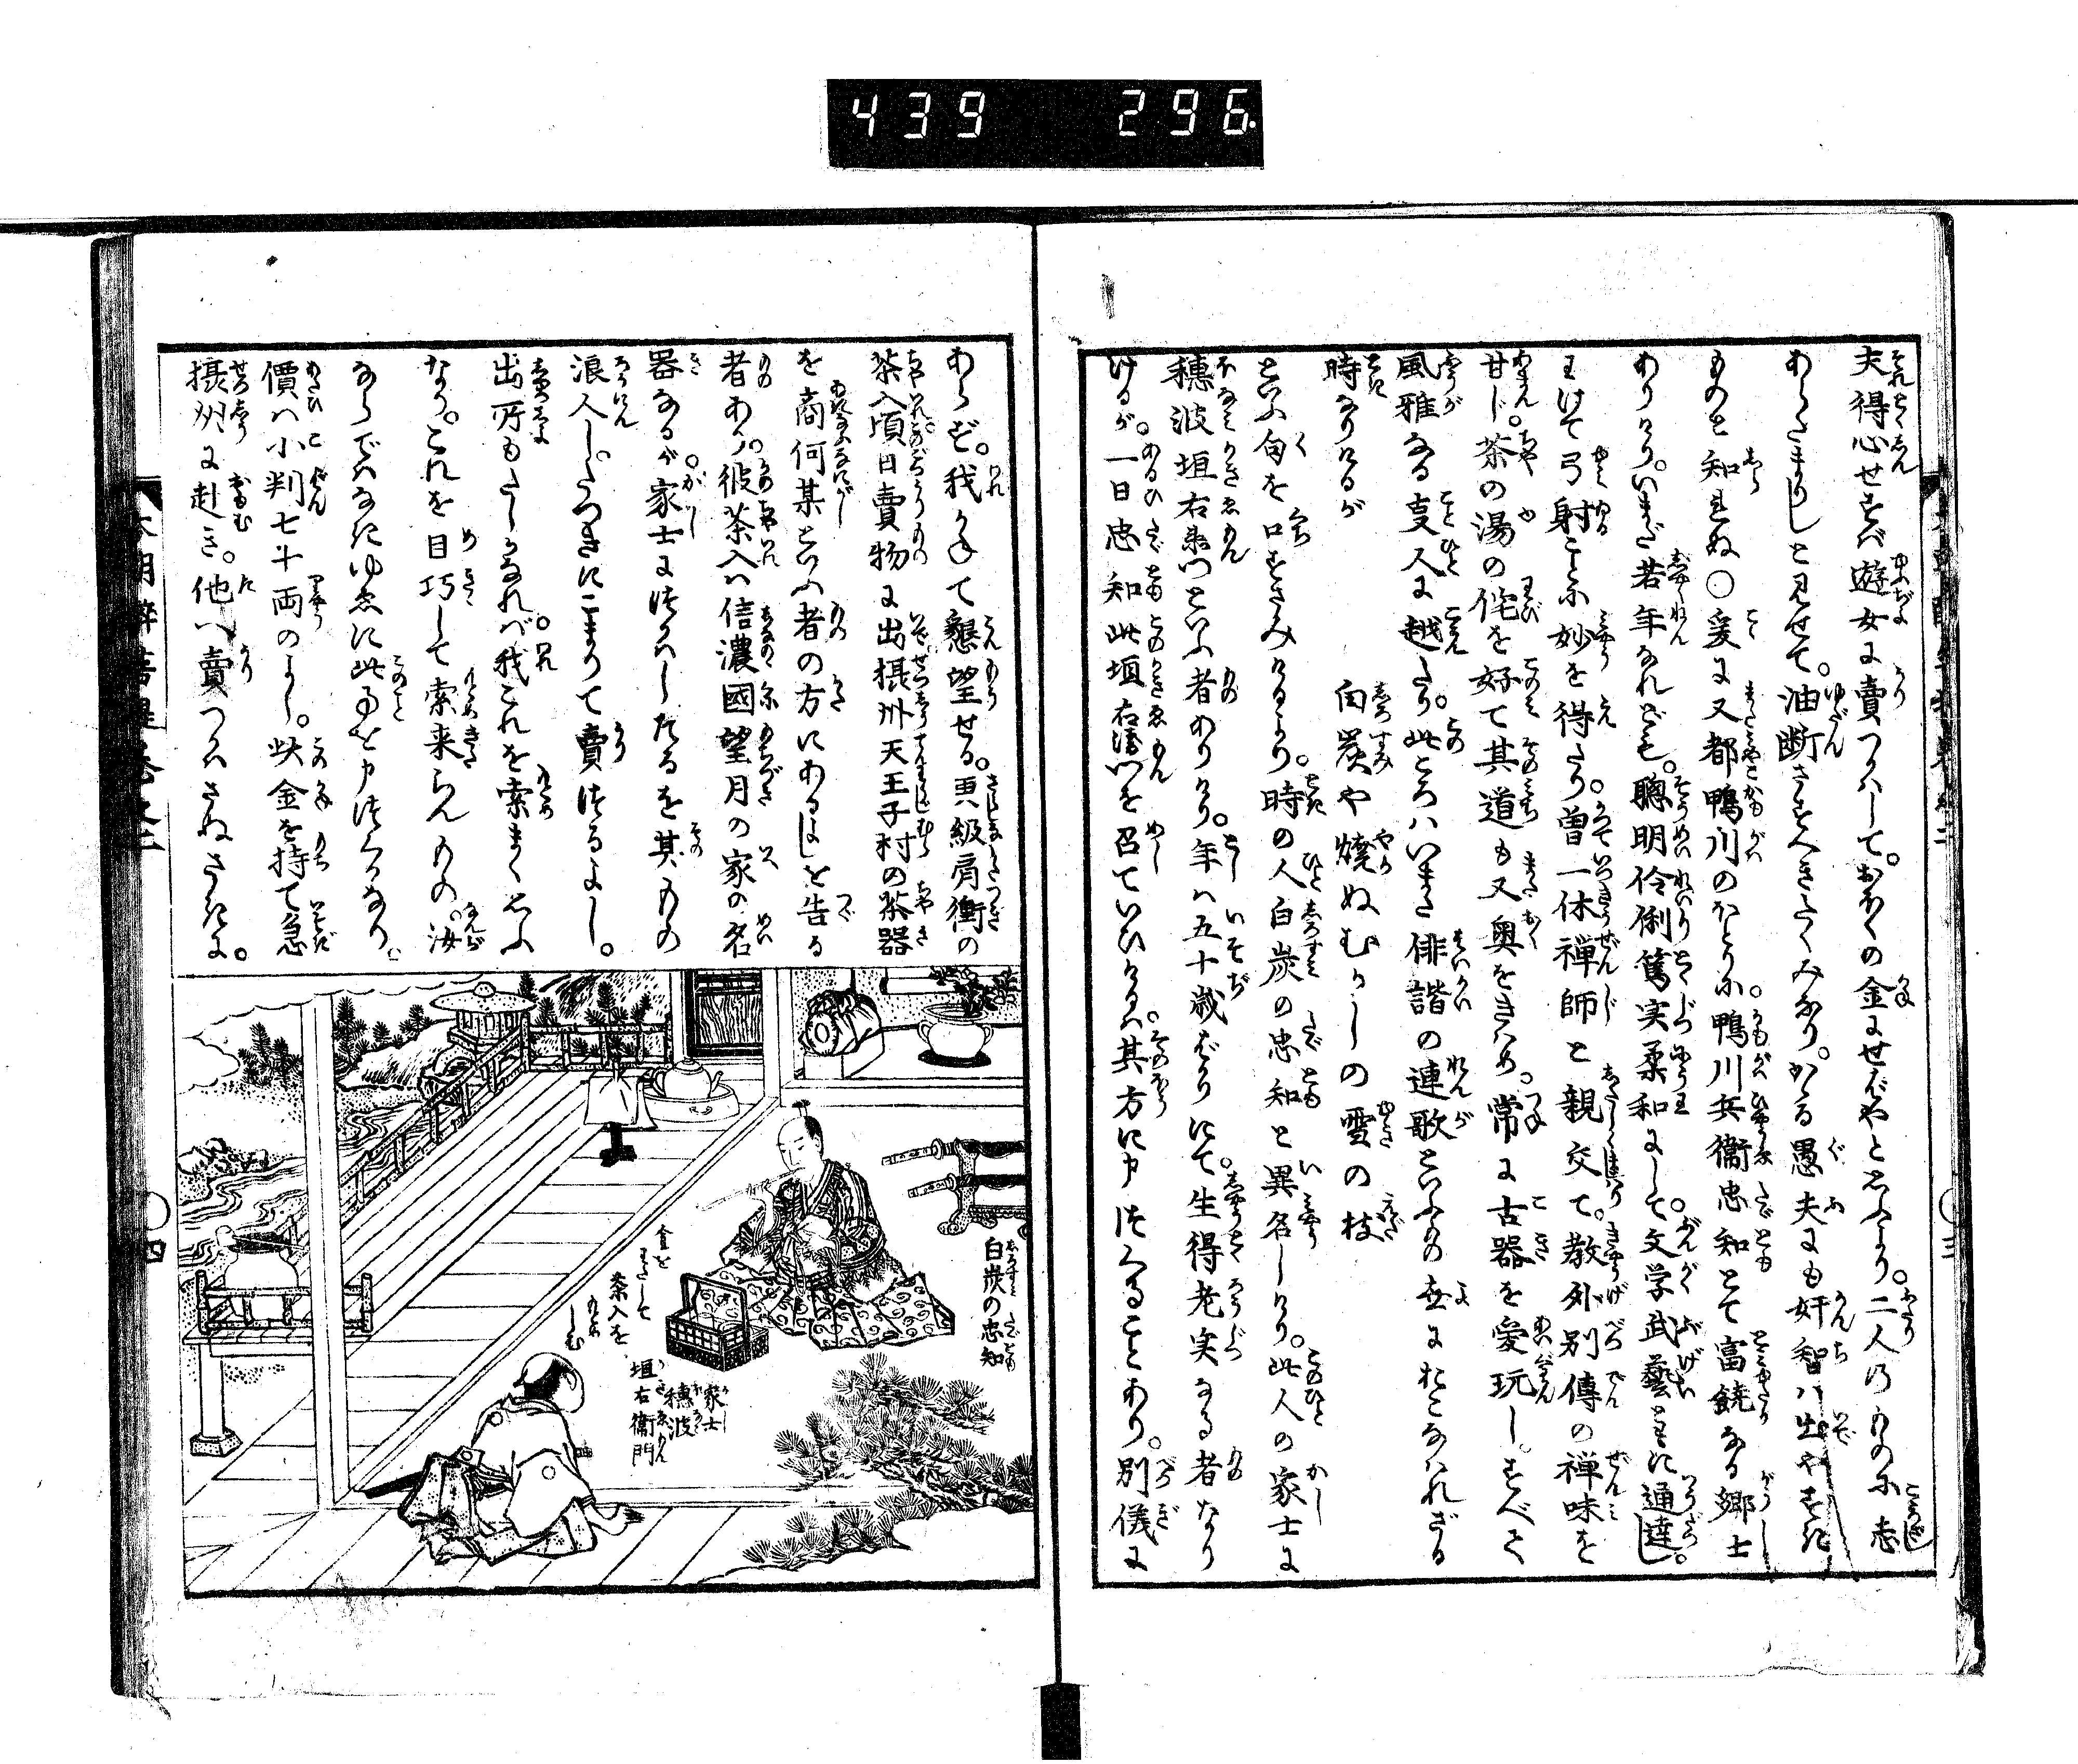 439 296.
夫得心せずば遊女に賣つかはして。おほくの金にせばやと思ふより。二人のものに志
あらたまりしと見せて。油断さすべきたくみなり。かゝる愚夫にも奸智は出やすき
ものと知られぬ○爰に又都鴨川のほとりに。鴨川兵衞忠知とて富饒なる郷士
ありけり。いまだ若年なれども。聰明伶俐篤実柔和にして。文学武藝ともに通達し。
わけて弓射ことに妙を得たり。曽て一休禅師と親く交て。教外別傳の禅味を
甘じ。茶の湯の侘を好て其道も又奥をきはめ。常に古器を愛玩し。すべて
風雅なる事人に越たり。此ころはいまだ俳諧の連歌といふもの世におこなはれざる
時なりけるが
白炭や焼ぬむかしの雪の枝
といふ句を口ずさみけるより。時の人白炭の忠知と異名しけり。此人の家士に
穗波垣右衞門といふ者ありけり。年は五十歳ばかりにて。生得老実なる者なり
けるが。一日忠知此垣右衞門を召ていひけるは。其方に申つくることあり。別儀に
あらず。我かねて懇望せる。更級肩衝の
茶入頃日賣物に出摂州天王子村の茶器
を商何某といふ者の方にあるよしを告る
者あり。彼茶入は信濃國望月の家の名
器なるが。家士につかはしたるを其もの
浪人し。たつきにこまりて賣つるよし。
出所もたしかなれば。我これを索まくおもふ
なり。これを目巧して索来らんもの。汝
ならではなきゆゑに此事を申つくるなり。
價は小判七十両のよし。此金を持て急
摂州に赴き。他へ賣つかはさぬさきに。
白炭の忠知
金を
わたして
茶入を
もとめ
しむ
家士
穗波
垣右衞門
三
四